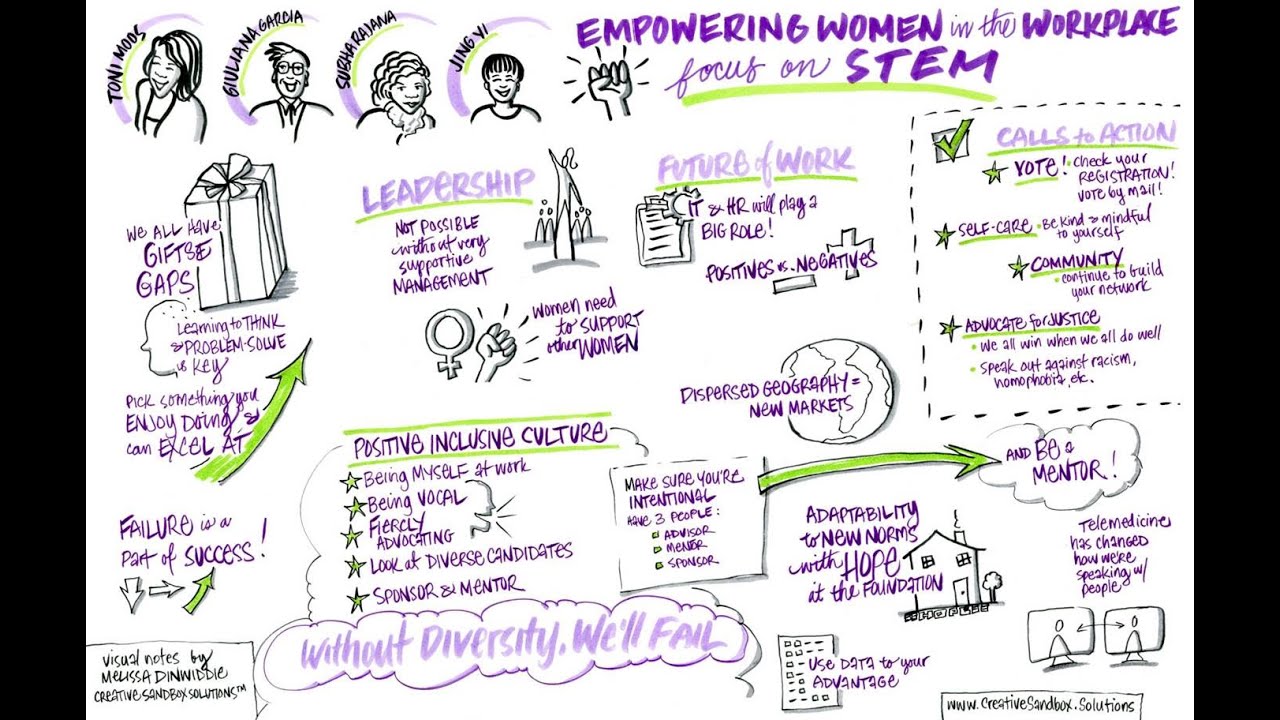 TONI MODS
GIULIANA GARCIA
SUBHA RAJANA
JING YI
EMPOWERING WOMEN in the WORKPLACE
focus on STEM
WE ALL HAVE
GIFTS &
GAPS
Learning to THINK
& PROBLEM-SOLVE
is KEY
PICK SOMETHING YOU
ENJOY DOING &
can EXCEL AT
FAILURE is a
part of SUCCESS!
LEADERSHIP
NOT POSSIBLE
without very
supportive
MANAGEMENT
WOMEN NEED
to SUPPORT
other WOMEN
FUTURE of WORK
IT & HR will play a
BIG ROLE!
POSITIVES vs. NEGATIVES
DISPERSED GEOGRAPHY =
NEW MARKETS
CALLS to ACTION
VOTE! • check your
REGISTRATION!
VOTE by MAIL!
SELF-CARE • BE KIND & mindful
to yourself
COMMUNITY
• continue to build
your network
ADVOCATE for JUSTICE
• We all win when we all do well
• Speak out against racism,
homophobia, etc.
POSITIVE INCLUSIVE CULTURE
Being MYSELF at work
Being VOCAL
FIERCLY
ADVOCATING
Look at DIVERSE CANDIDATES
SPONSOR & MENTOR
MAKE SURE YOU'RE
INTENTIONAL
HAVE 3 PEOPLE:
ADVISOR
MENTOR
SPONSOR
AND BE a
MENTOR!
ADAPTABILITY
to NEW NORMS
with HOPE
at the FOUNDATION
HOPE
Telemedicine
has changed
how we're
speaking w/
people
Without Diversity, We'll FAIL
USE DATA to your
ADVANTAGE
visual notes by
MELISSA DINWIDDIE
CREATIVE SANDBOX SOLUTIONS™
www.CreativeSandbox.Solutions